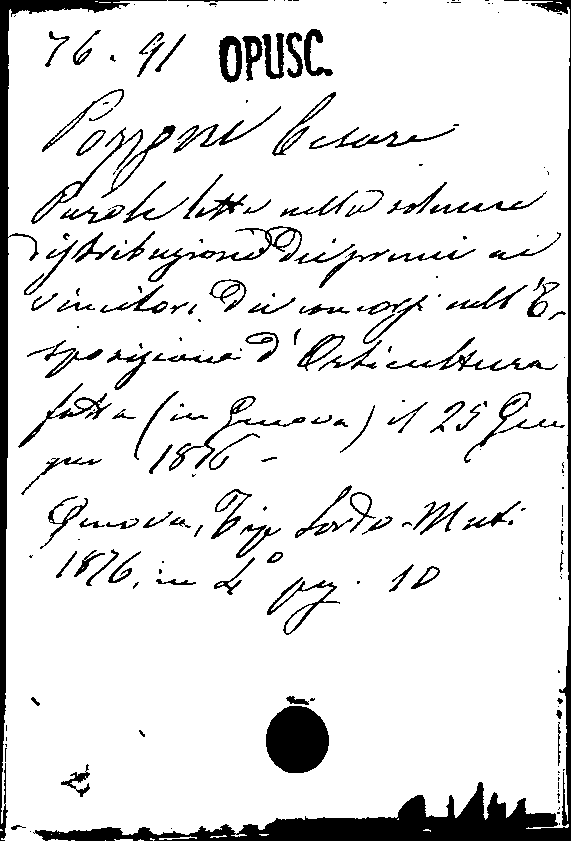 76. 91 OPUSC.
Pozzoni Cesare
Parole lette nella solenne
distribuzione dei premi ai
vincitori dei concorsi nell'E-
sposizione d'Orticultura
fatta (in Genova) il 25 Giu
gno 1876 -
Genova, Tip Sordo-Muti
1876, in 4° pag. 10